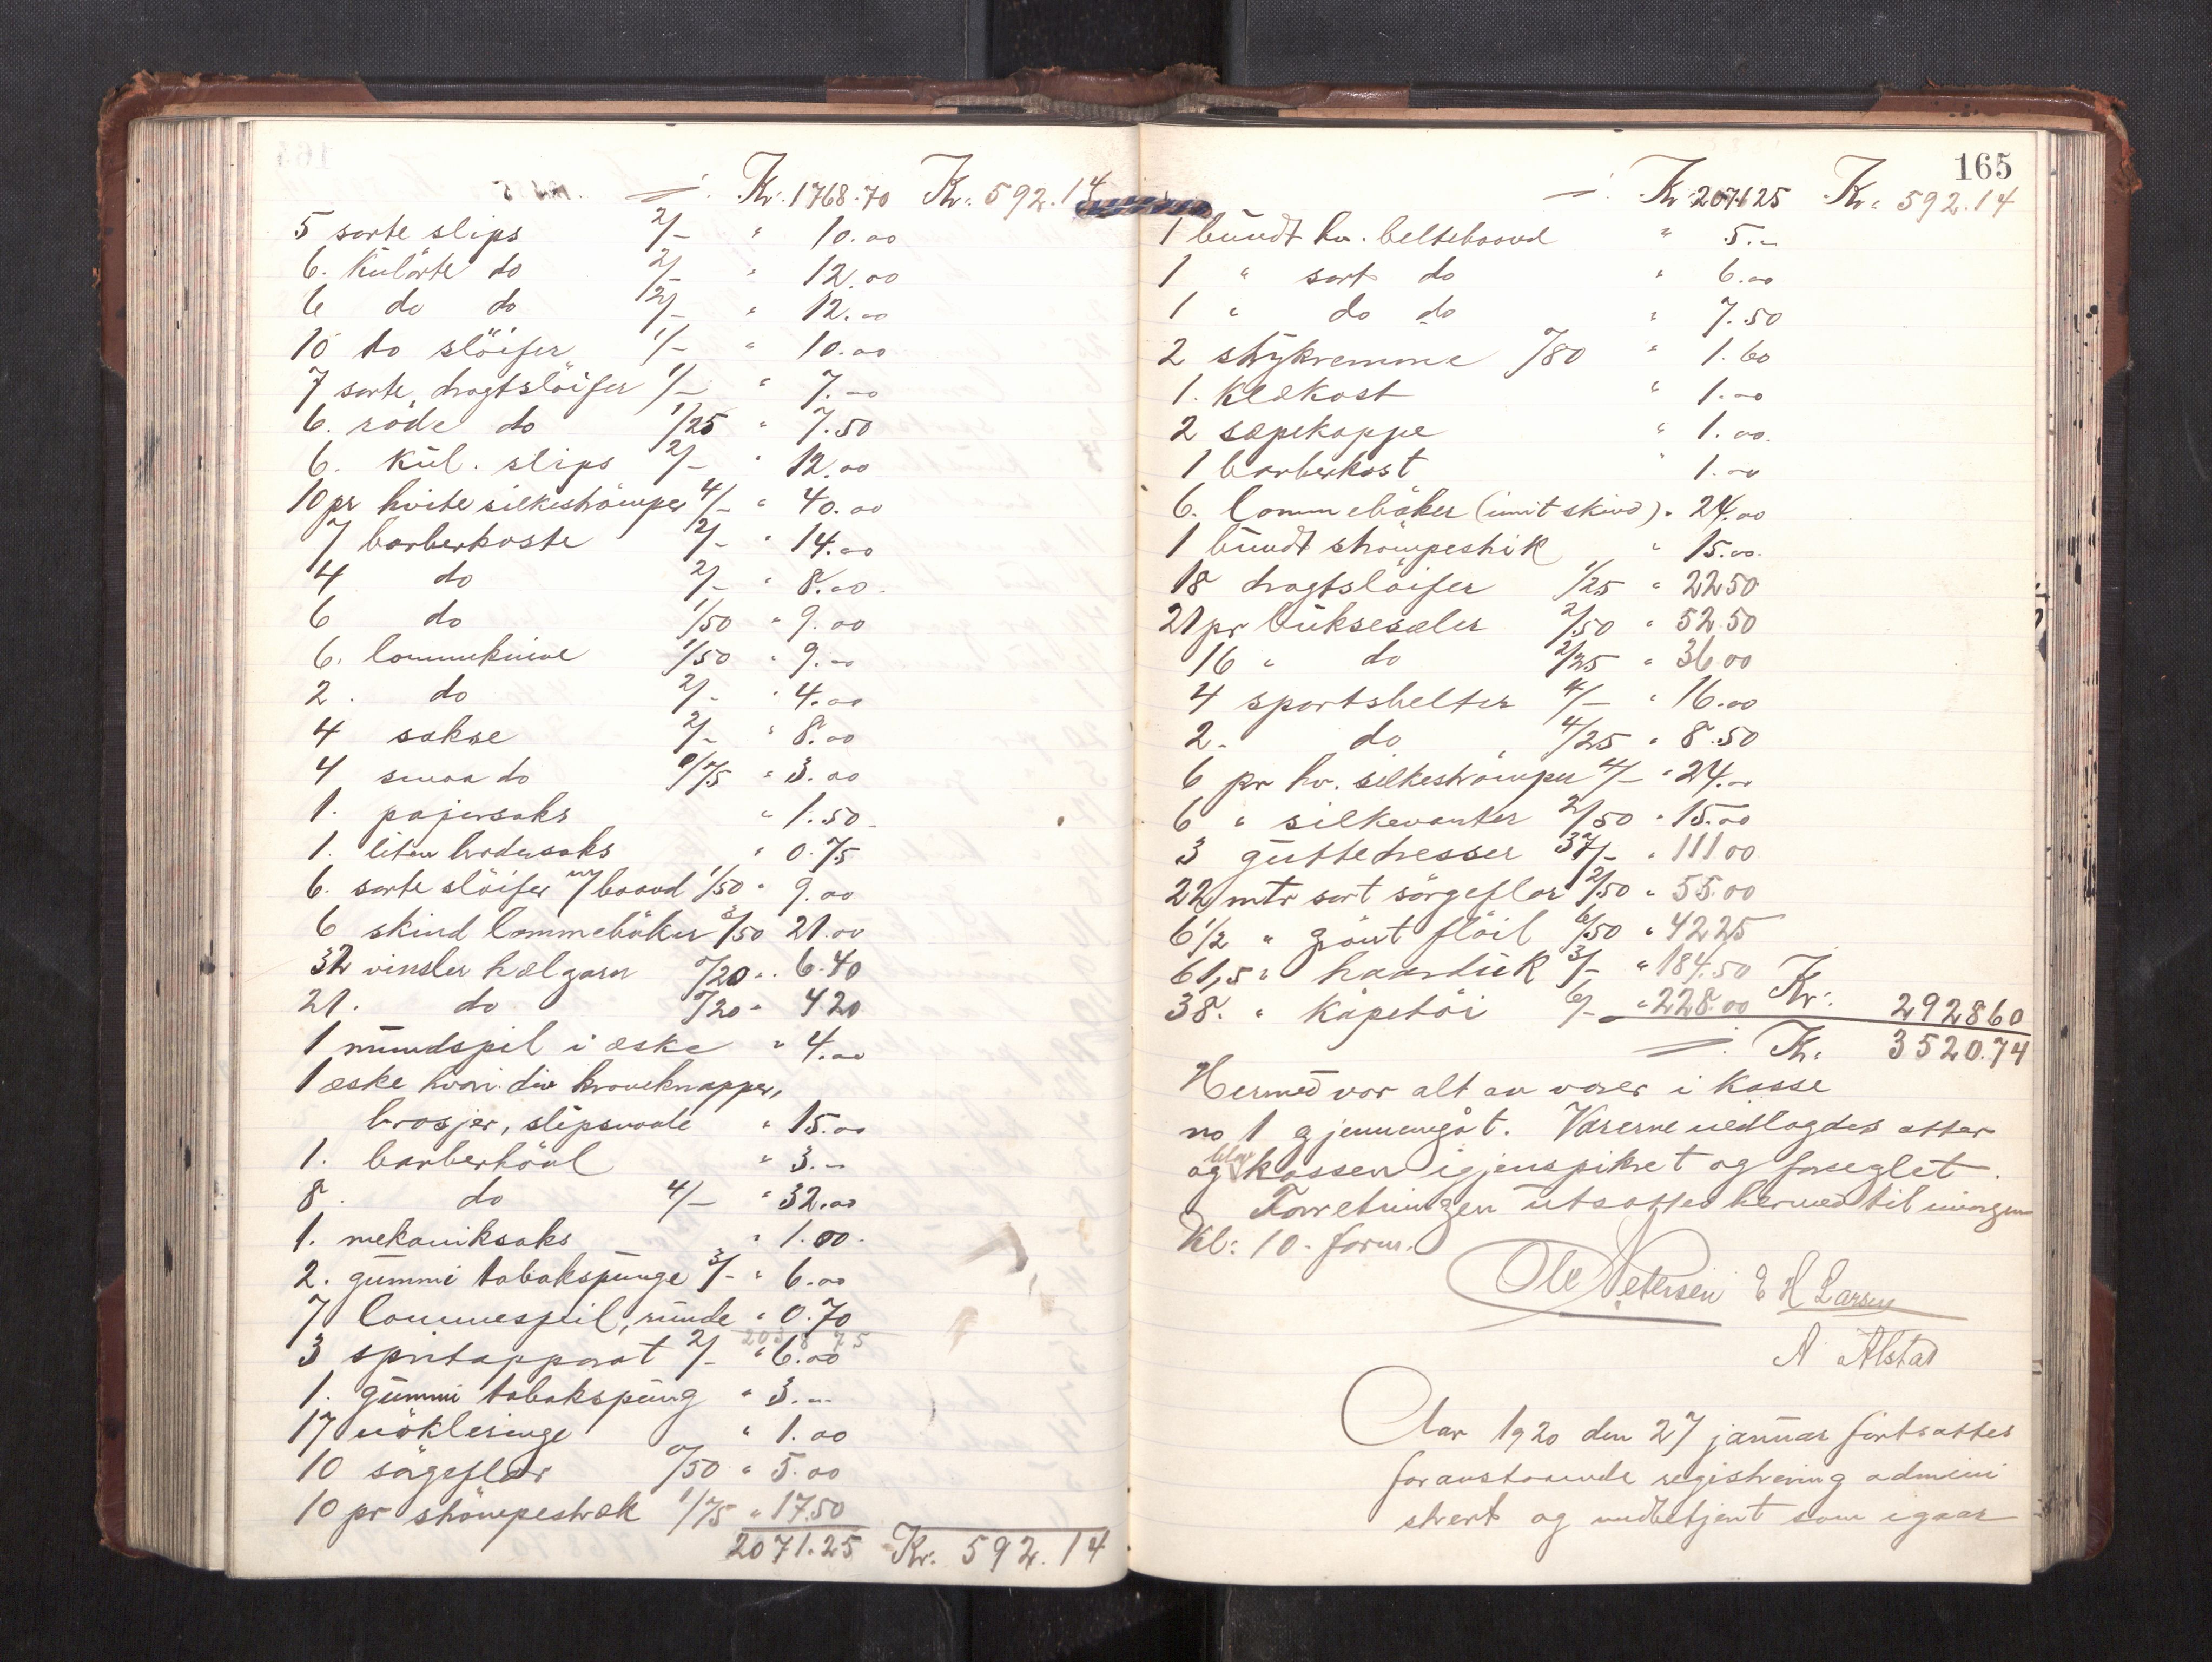 Kr. 1768.70 Kr. 592.14
5 sorte slips 2/- " 10.00
6. kulörte do 2/- " 12.00
6 do do 2/- " 12.00
10 do slöifer 1/- " 10.00
7 sorte dragtslöifer 1/- " 7.00
6. röde do 1/25 " 7.50
6. kul. slips 2/- " 12.00
10 pr hvite silkeströmper 4/- " 40.00
7 barberkoste 2/- " 14.00
4 do 2/- " 8.00
6 do 1/50 " 9.00
6. lommeknive 1/50 " 9.00
2. do 2/- " 4.00
4 sakse 2/- " 8.00
4 smaa do 0/75 " 3.00
1. papirsaks " 1.50
1. liten brodersaks " 0.75
6. sorte slöifer m/baand 1/50 " 9.00
6 skind lommeböker 3/50 21.00
32 vinsler hælgarn 0/20 " 6.40
21. do 0/20 " 4.20
1 mundspil i æske " 4.00
1 æske hvori div kraveknapper,
brosjer, slipsnaale " 15.00
1. barberhövl " 3.-
8. do 4/- " 32.00
1. mekaniksaks " 1.00
2. gummi tobakspunge 3/- " 6.00
7 lommespeil, runde " 0.70
2038 75
3 spritapparat 2/- " 6.00
1. gummi tobakspung " 3.-
17 nökleringe " 1.00
10 sörgeflor 0/50 " 5.00
10 pr strömpestræk 1/75 " 17.50
2071.25 Kr. 592.14
165
Kr. 2071.25 Kr. 592.14
1 bundt hv. beltebaand " 5.-
1 " sort do " 6.00
1 " do do " 7.50
2 strykremme 0/80 " 1.60
1. klækost " 1.00
2 sæpekoppe " 1.00
1 barberkost " 1.00
6. lommeböker (imit skind) " 24.00
1 bundt strömpestrik " 15.00
18 dragtslöifer 1/25 " 22 50
21 pr buksesæler 2/50 " 52.50
16 " do 2/25 " 36 00
4 sportsbelter 4/- " 16.00
2 - do 4/25 " 8.50
6 pr hv. silkeströmper 4/- " 24.00
6 " silkevanter 2/50 " 15.00
3 guttedresser 37/- " 111 00
22 mtr sort sörgeflor 2/50 " 55.00
6 1/2 " grönt flöil 6/50 " 42 25
61,5 " haarduk 3/- " 184.50
38. " kåpetöi 6/- " 228.00 Kr. 2928 60
Kr. 3520.74
Hermed var alt av varer i kasse
no 1 gjennemgåt. Varerne nedlagdes atter
og blev kassen igjenspikret og forseglet.
Forretningen utsattes hermed til imorgen
Kl: 10. form.
Ole Petersen E H Larsen
A Alstad
Aar 1920 den 27 januar fortsattes
foranstaaende registrering admini
strert og medbetjent som igaar